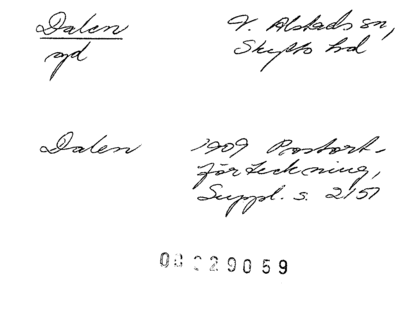 Dalen
gd
V. Alstads sn,
Skytts hd
Dalen
1909 Postort-
förteckning,
Suppl. s. 2151